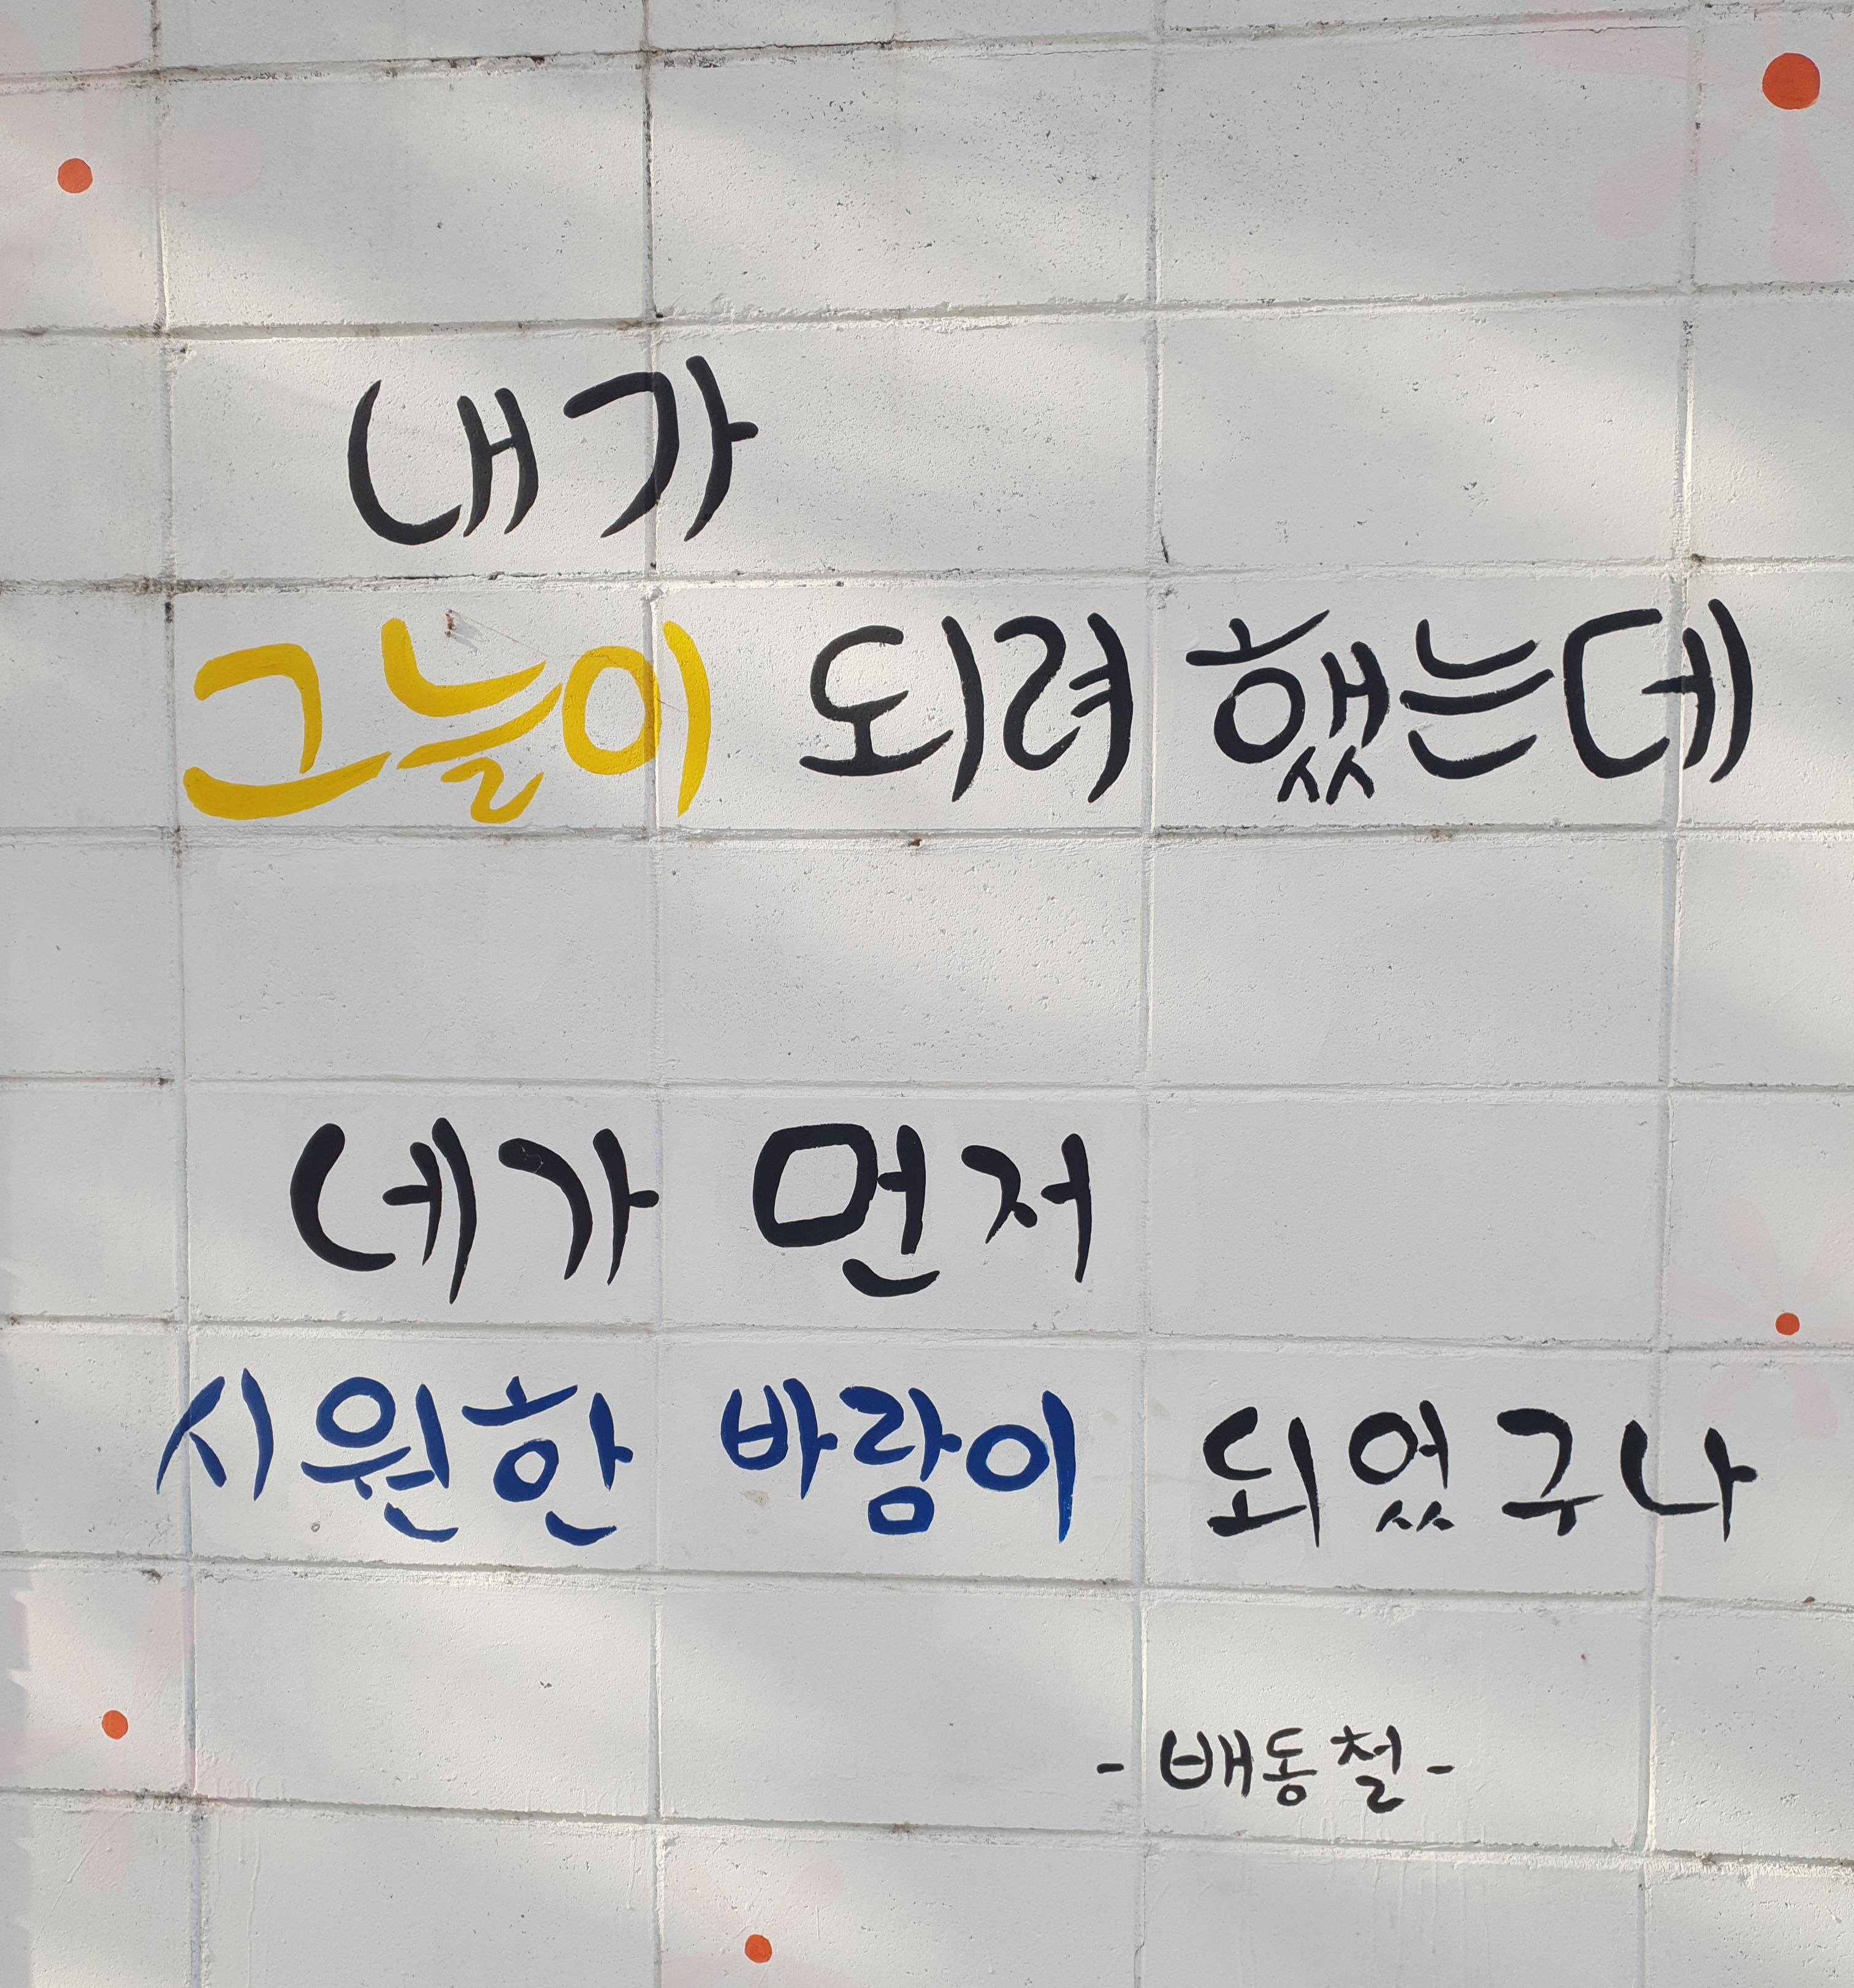 내가
그늘이 되려 했는데
네가 먼저
시원한 바람이 되었구나
- 배동철 -